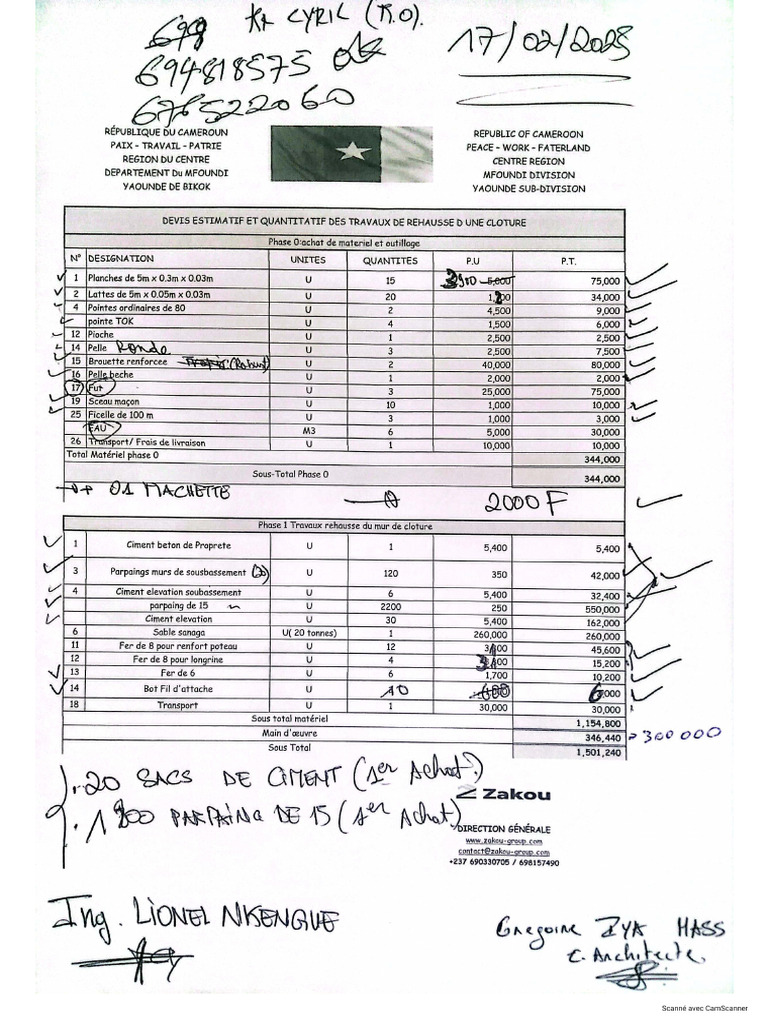 Mr CYRIL (R.O).
694818575
676522060
17/02/2025
RÉPUBLIQUE DU CAMEROUN
PAIX - TRAVAIL - PATRIE
REGION DU CENTRE
DEPARTEMENT DU MFOUNDI
YAOUNDE DE BIKOK
REPUBLIC OF CAMEROON
PEACE - WORK - FATERLAND
CENTRE REGION
MFOUNDI DIVISION
YAOUNDE SUB-DIVISION
DEVIS ESTIMATIF ET QUANTITATIF DES TRAVAUX DE REHAUSSE D UNE CLOTURE
Phase 0:achat de materiel et outillage
N° DESIGNATION UNITES QUANTITES P.U P.T.
1 Planches de 5m x 0.3m x 0.03m U 15 5,000 75,000
2 Lattes de 5m x 0.05m x 0.03m U 20 34,000
4 Pointes ordinaires de 80 U 2 4,500 9,000
pointe TOK U 4 1,500 6,000
12 Pioche U 1 2,500 2,500
14 Pelle Ronde U 3 2,500 7,500
15 Brouette renforcee (Robust) U 2 40,000 80,000
16 Pelle beche U 1 2,000 2,000
17 Fut U 3 25,000 75,000
19 Sceau maçon U 10 1,000 10,000
25 Ficelle de 100 m U 3 1,000 3,000
EAU M3 6 5,000 30,000
26 Transport/ Frais de livraison U 1 10,000 10,000
Total Matériel phase 0 344,000
Sous-Total Phase 0 344,000
+ 01 MACHETTE 2000 F
Phase 1 Travaux rehousse du mur de cloture
1 Ciment beton de Proprete U 1 5,400 5,400
3 Parpaings murs de sousbassement (20) U 120 350 42,000
4 Ciment elevation soubassement U 6 5,400 32,400
parpaing de 15 U 2200 250 550,000
Ciment elevation U 30 5,400 162,000
6 Sable sanaga U( 20 tonnes) 1 260,000 260,000
11 Fer de 8 pour renfort poteau U 12 45,600
12 Fer de 8 pour longrine U 4 15,200
13 Fer de 6 U 6 1,700 10,200
14 Bot Fil d'attache U 10 600 6,000
18 Transport U 1 30,000 30,000
Sous total matériel 1,154,800
Main d'œuvre 346,440 300000
Sous Total 1,501,240
. 20 SACS DE CIMENT (1er Achat)
. 1800 PARPAING DE 15 (1er Achat)
Zakou
DIRECTION GÉNÉRALE
www.zakou-group.com
contact@zakou-group.com
+237 690330705 / 698157490
Ing. LIONEL NKENGUE
Gregoire ZYA HASS
C. Architecte.
Scanné avec CamScanner